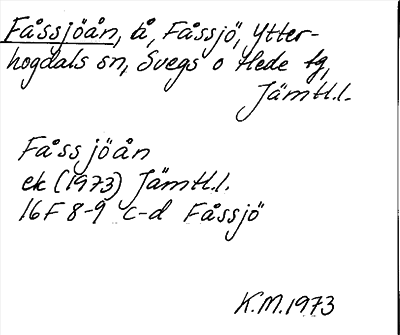 Fåssjöån, å, Fåssjö, Ytter-
hogdals sn, Svegs o Hede tg,
Jämtl.l.
Fåssjöån
ek (1973) Jämtl.l.
16F 8-9 c-d Fåssjö
K.M.1973